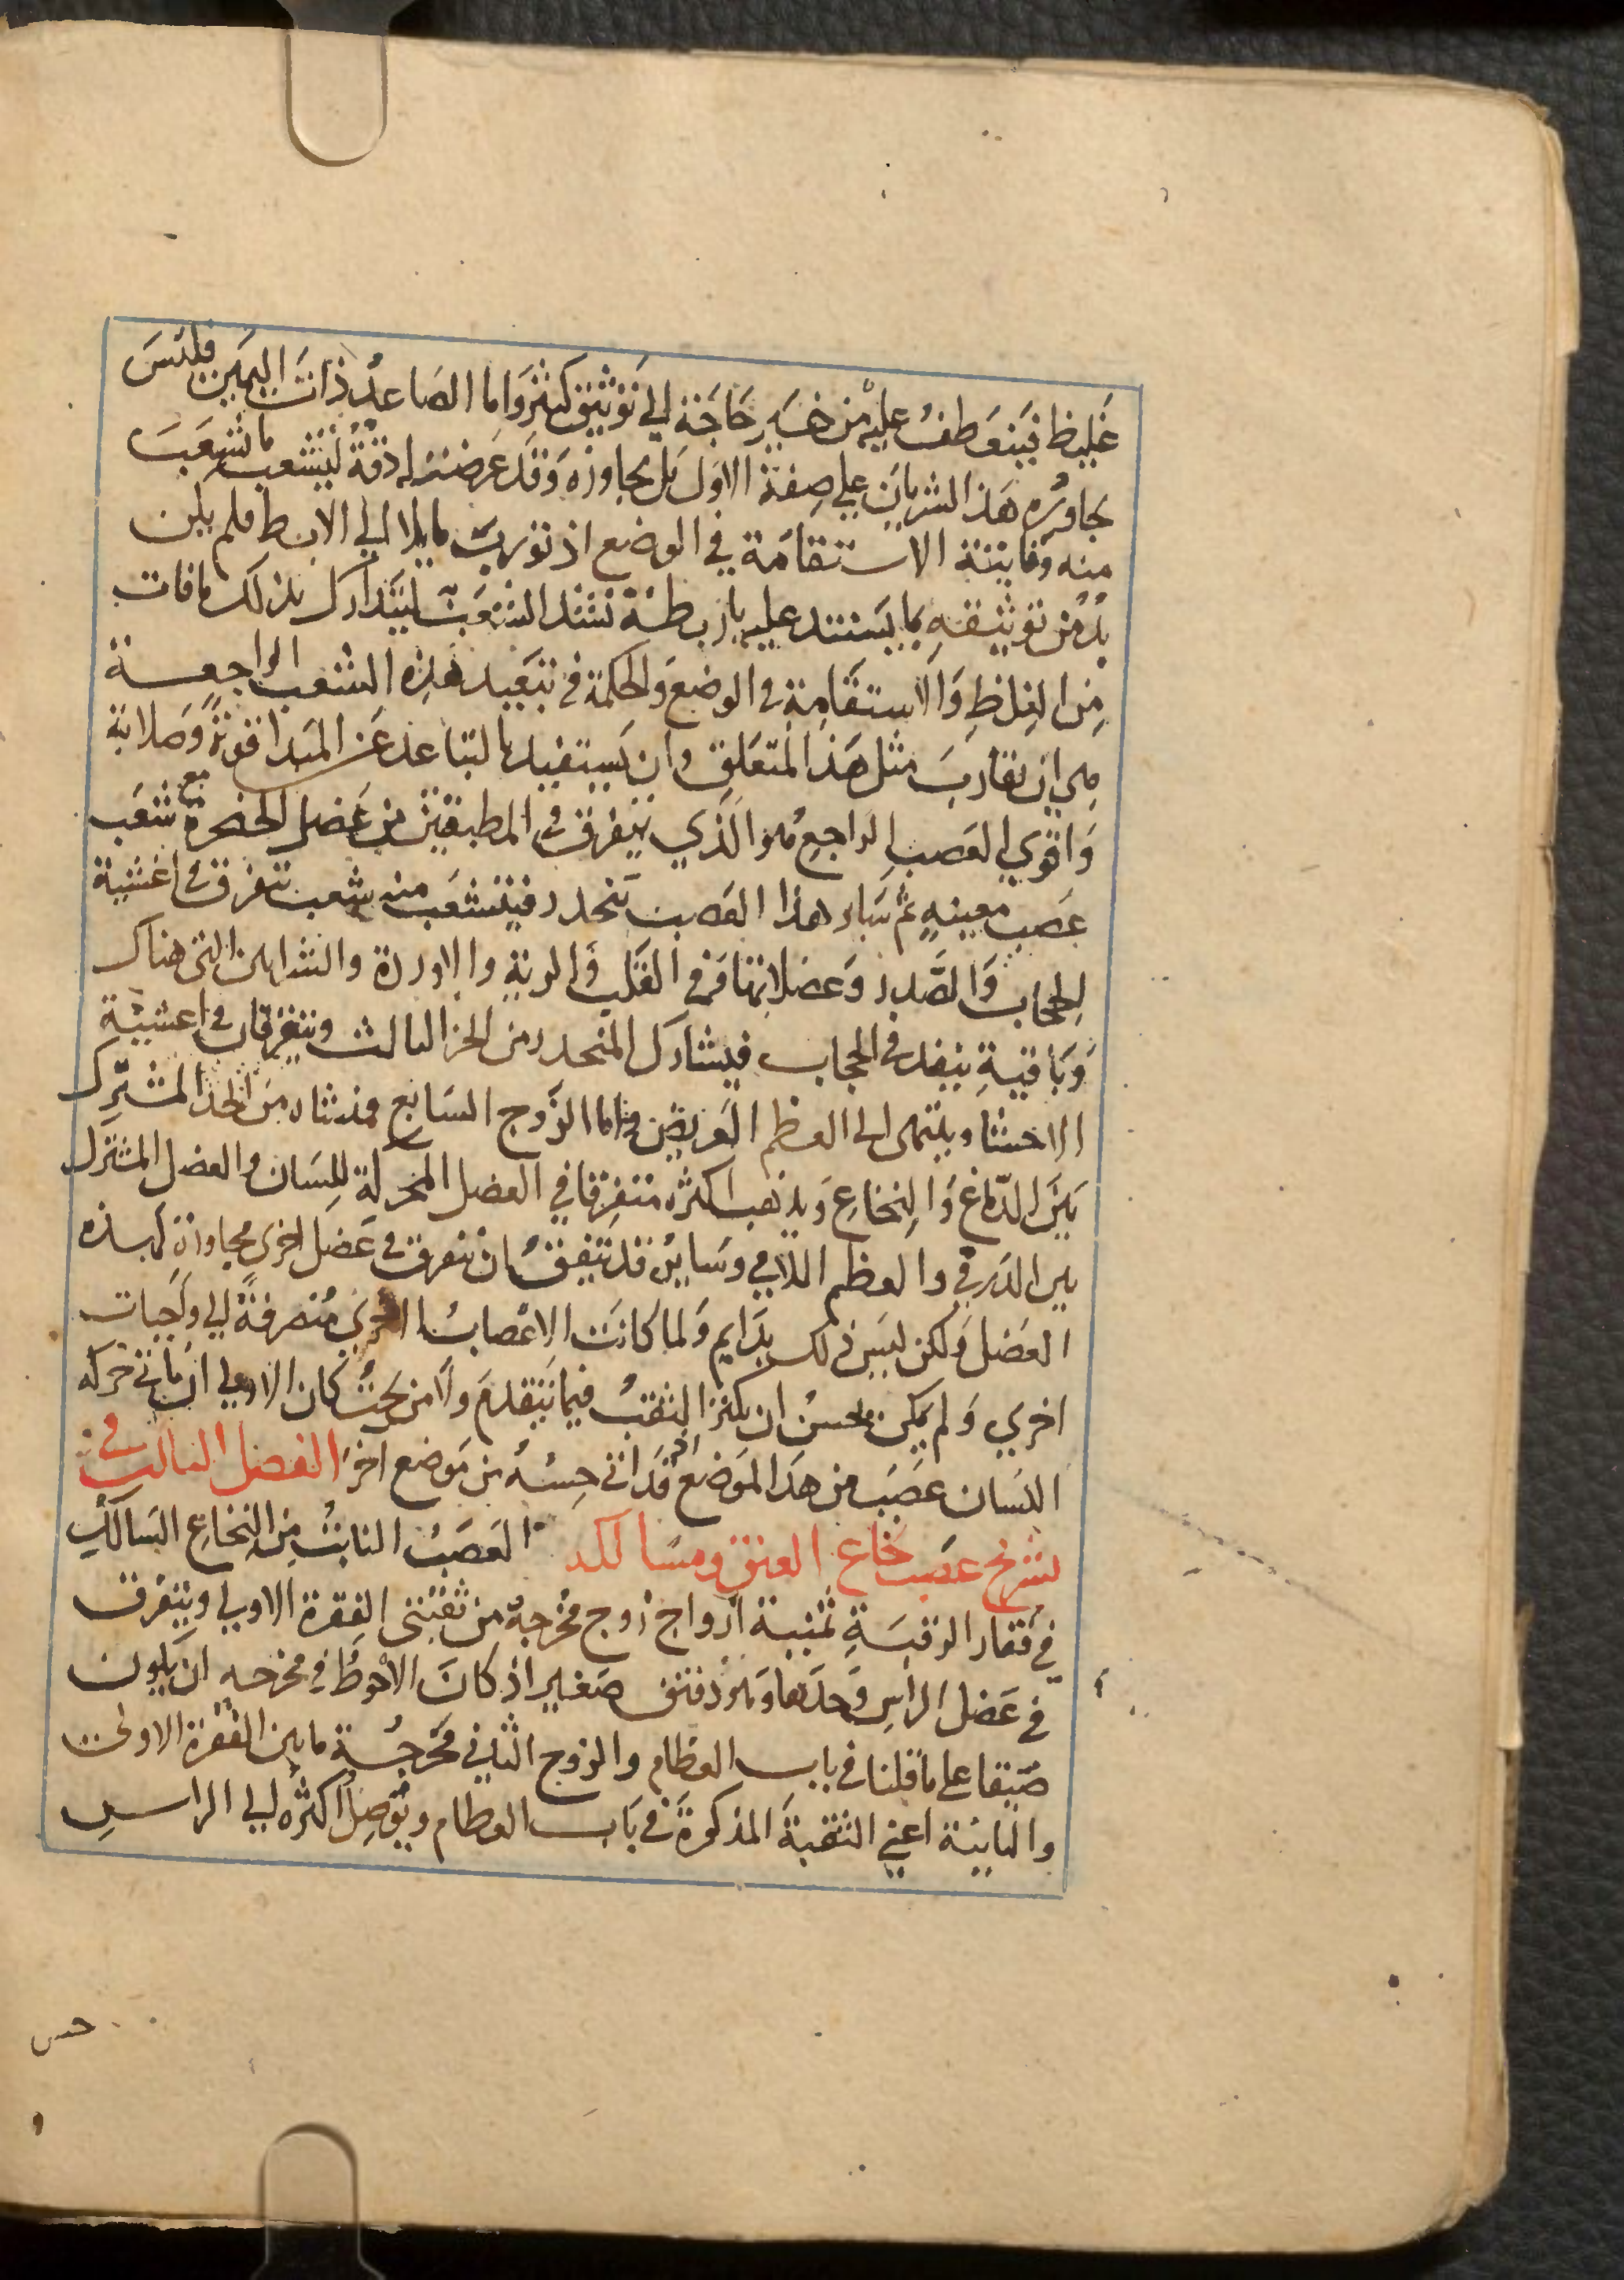 غليظا فينعطف عليه من غير حاجة الي توثيق كثير واما الصاعد ذات اليمين فليس
يجاوره هذا الشريان علي صفة الاول بل يجاوزه وقد عرضت له دقة لتشعب ما تشعب
منه وفايتة الاستقامة في الوضع اذ تورب مايلا الي الابط فلم يكن
بد من توثيقه بما يستند عليه باربطة تشد الشعب ليتدارك بذلك ما فات
من الغلظ والاستقامة في الوضع والحكمة في تبعيد هذه الشعب الراجعة
هي ان تقارب مثل هذا المتعلق وان يستفيد بالتباعد عن المبدا قوة وصلابة
واقوي العصب الراجع هو الذي يتفرق في المطبقتين من عضل الحنجرة مع شعب
عصب معينه ثم ساير هذا العصب ينحدر فيتشعب منه شعب تتفرق في اغشية
الحجاب والصدر وعضلاتهما وفي القلب والرية والاوردة والشرايين التي هناك
وباقية ينفد في الحجاب فيشارك المنحدر من الجز الثالث ويتفرقان في اغشية
الاحشا وينتهى الى العظم العريض واما الزوج السابع فمنشاه من الحد المشترك
بين الدماغ والنخاع ويذهب اكثره متفرقا في العضل المحركة للسان والعضل المشترك
بين الدرقي والعظم اللامي وسايره قد يتفق ان يتفرق في عضل اخرى مجاورة لهذه
العضل ولكن ليس ذلك بدايم ولما كانت الاعصاب الاخري منصرفة الي واجبات
اخري ولم يكن يحسن ان يكثر الثقب فيما يتقدم ولا من تحت كان الاولي ان ياتي حركة
اللسان عصب من هذا الموضع اذ قد اتي حسه من موضع اخر الفصل الثالث في
تشريح عصب نخاع العنق ومسالكه العصب النابت من النخاع السالك
في فقار الرقبة ثمنية ازواج زوج مخرجه من ثقبتي الفقرة الاولي ويتفرق
في عضل الراس وحدها وهو دقيق صغير اذ كان الاحوط في مخرجه ان يكون
ضيقا على ما قلنا في باب العظام والزوج الثاني مخرجه ما بين الفقرة الاولى
والثانية اعني الثقبة المذكورة في باب العظام ويوصل اكثره الي الراس
حس